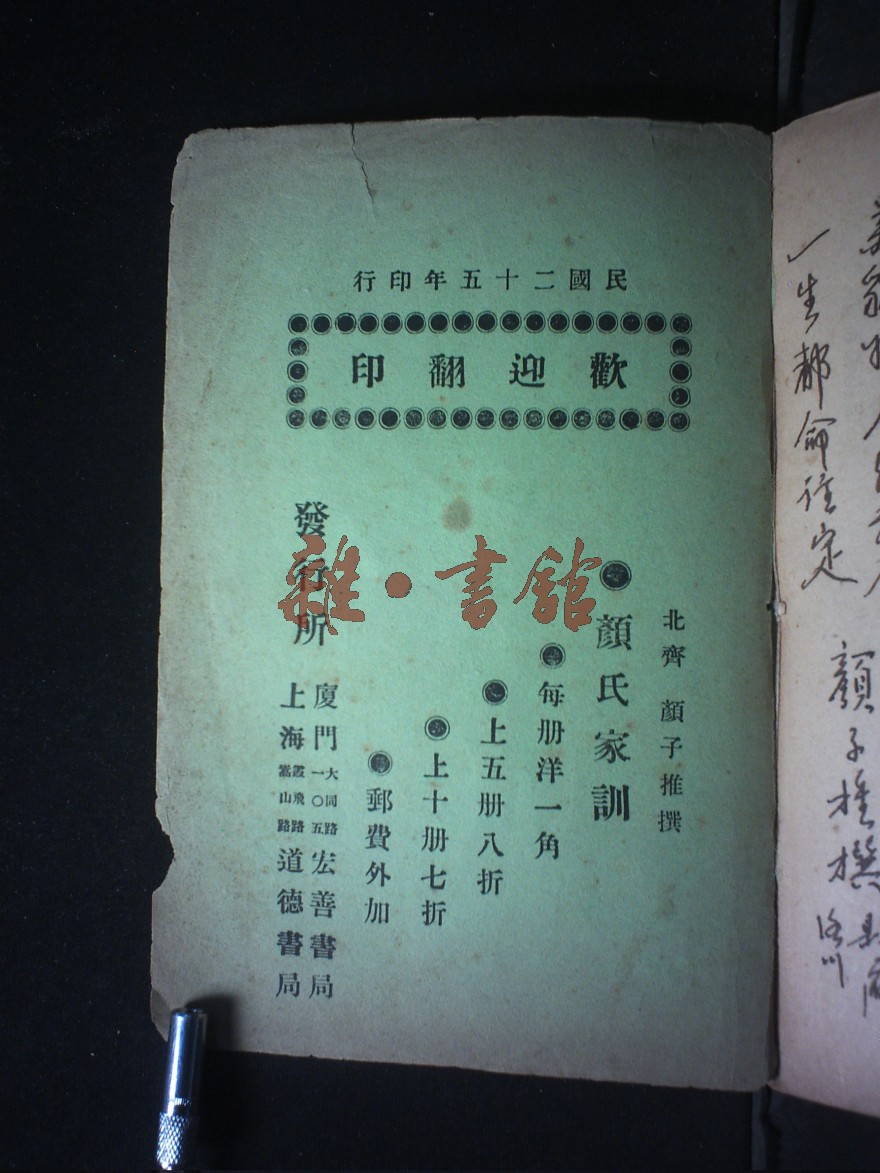 民國二十五年印行
歡迎翻印
北齊 顏子推撰
●顏氏家訓
●每册洋一角
●上五册八折
●上十册七折
●郵費外加
發行所
廈門大同路一〇五宏善書局
上海霞飛路嵩山路道德書局
雜·書館
一生都命注定
顏子推撰